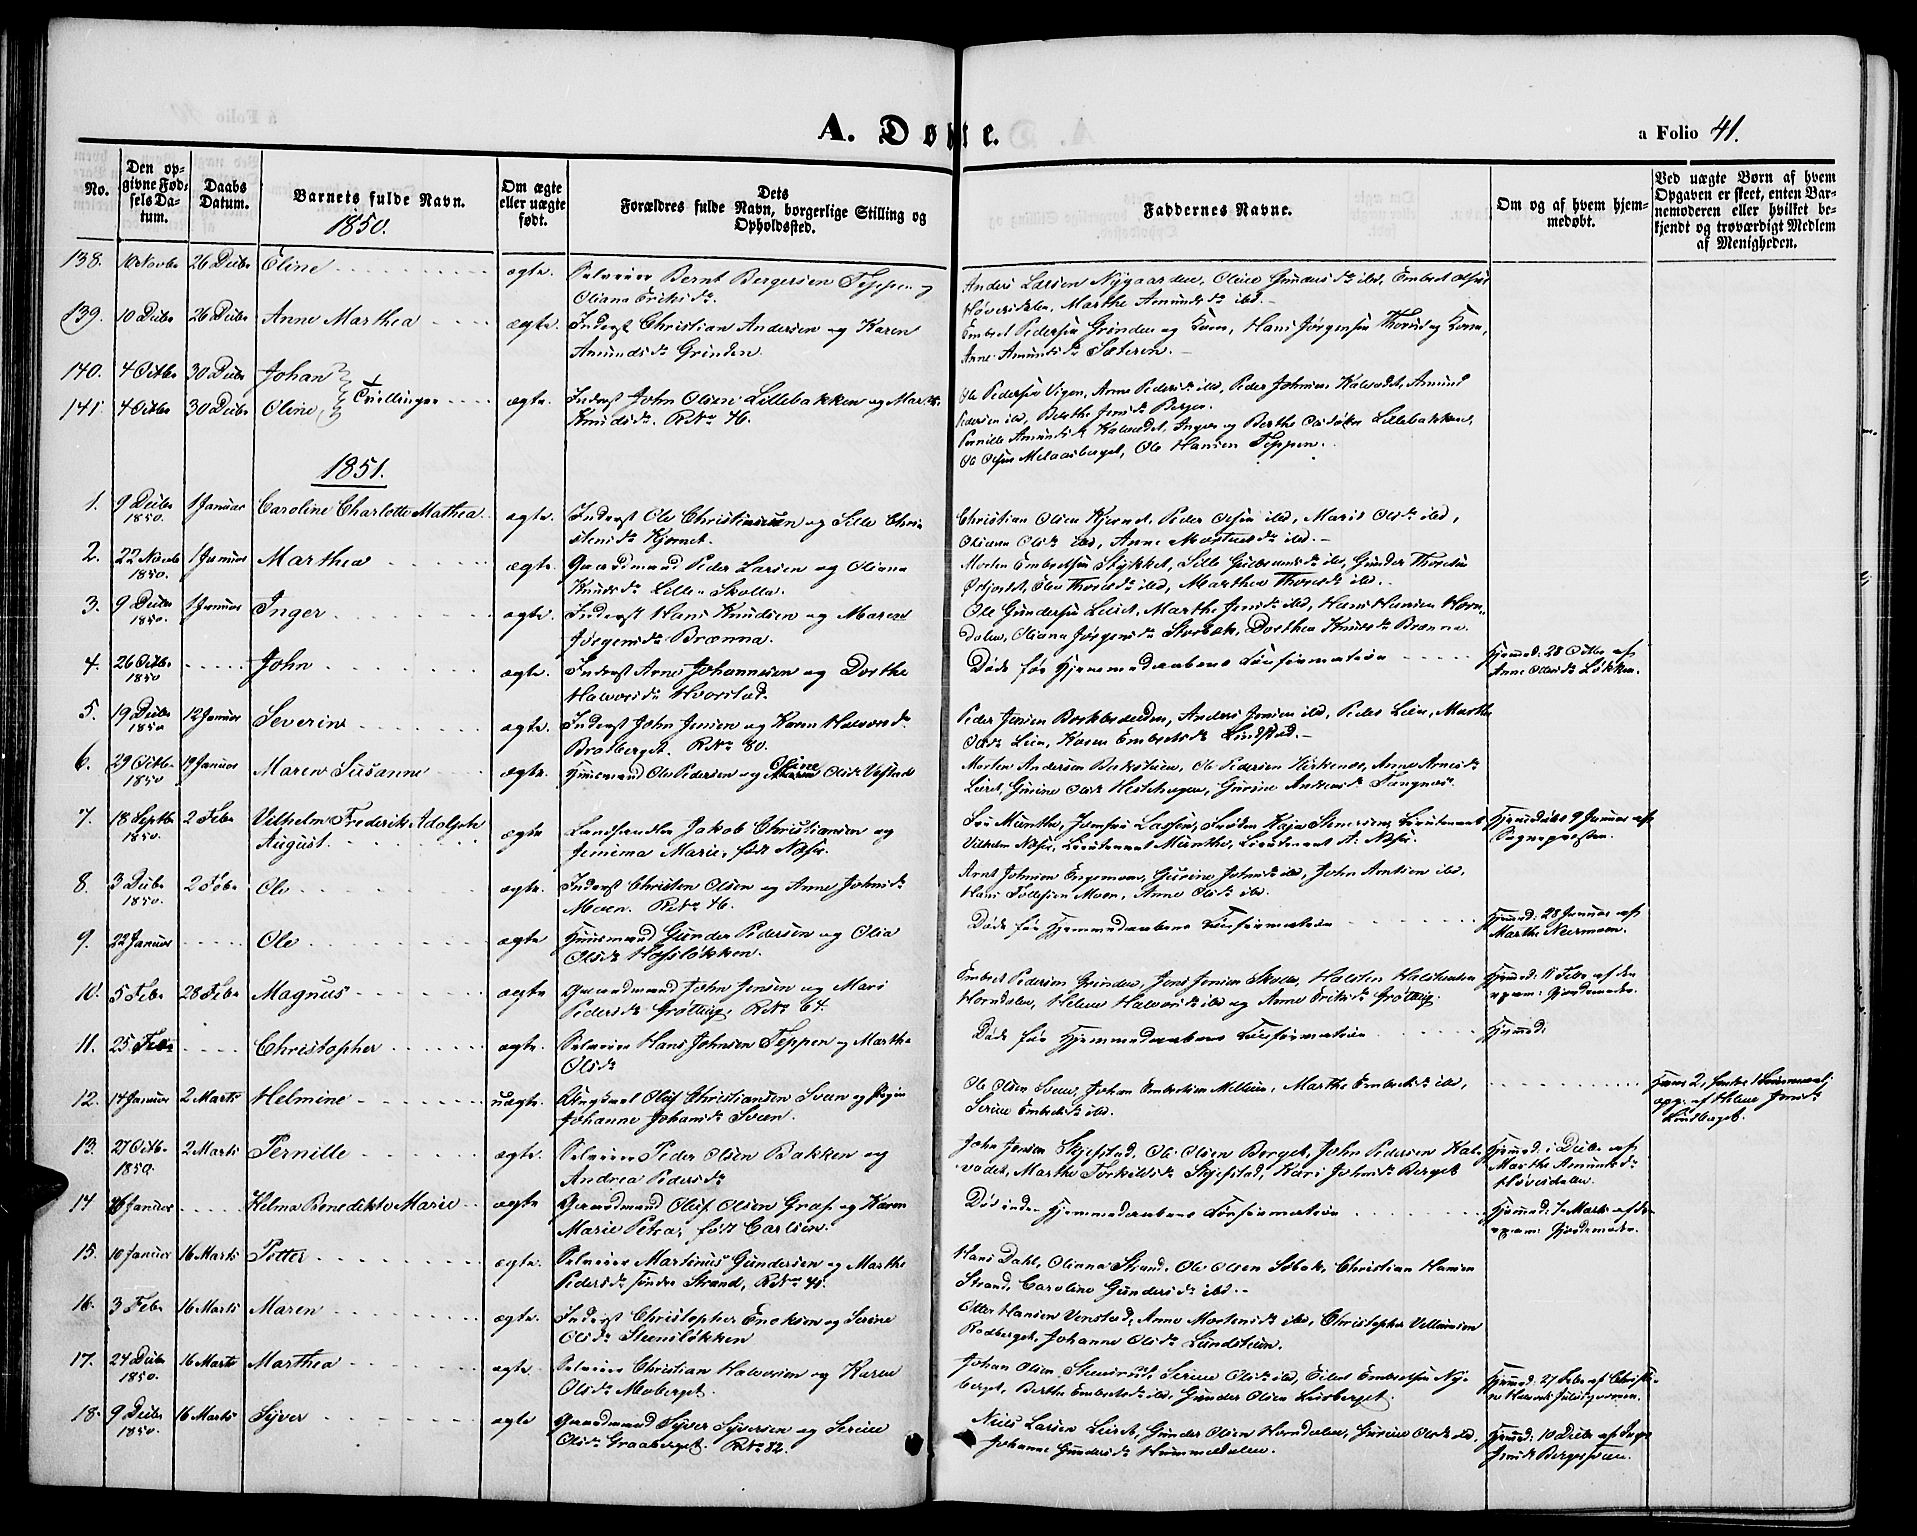 A. Døbte.
a Folio 41.
No.
Den op-
givne Fød-
sels Da-
tum.
Daabs
Datum.
Barnets fulde Navn.
1850.
Om ægte
eller uægte
født.
Dets
Forældres fulde Navn, borgerlige Stilling og
Opholdssted.
Faddernes Navne.
Om og af hvem hjem-
medøbt.
Ved uægte Børn af hvem
Opgaven er skeet, enten Bar-
nemoderen eller hvilket be-
kjendt og troværdigt Medlem
af Menigheden.
138. 10 Novbr 26 Decbr Eline ægte. Selveier Bernt Bergersen Teppen og
Oliana Eriksdr.
Anders Larsen Nygaarden, Oline Gundersdr ibd, Embret Olsen
Høversdalen, Marthe Amundsdr ibd.
139. 10 Decbr 26 Decbr Anne Marthea ægte. Inderst Christian Andersen og Karen
Amundsdr Grinden.
Embret Pedersen Grinden og Kone, Hans Jørgensen Thorud og Kone,
Anne Amundsdr Sæteren.
140. 4 Octbr 30 Decbr Johan
141. 4 Octbr 30 Decbr Oline Tvillinger ægte. Inderst John Olsen Lillebakken og Marthe
Knudsdr. RNo 46.
Ole Pedersen Vigen, Anne Pedersdr ibd, Peder Johnsen Kalvodet, Amund
Pedersen ibd, Berthe Jensdr Berger.
Pernille Amundsdr Kalvodet, Inger og Berthe Olsdøtre Lillebakken,
Ole Olsen Melaasberget, Ole Hansen Teppen.
1851.
1. 9 Decbr 1 Januar Caroline Charlotte Mathea ægte. Inderst Ole Christiansen og Sille Chri-
1850. stensdr Kjernet.
Christian Olsen Kjernet, Peder Olsen ibd, Marit Olsdr ibd,
Oliana Olsdr ibd, Anne ibd.
2. 22 Novbr 1 Januar Marthea ægte. Gaardmand Peder Larsen og Oliana
1850. Knudsdr Lille-Skolla.
Morten Embretsen Stykket, Sille Gulbransdr ibd, Gunder Thoresen
Thoresdr ibd, Marthea Thoresdr ibd.
3. 9 Decbr 1 Januar Inger ægte. Inderst Hans Knudsen og Maren
1850. Jørgensdr Brænna.
Ole Gundersen Leiret, Marthe Jensdr ibd, Hans Hansen Horn-
dalen, Oliana Jørgensdr Storbæk, Dorthea Knudsdr Brænna.
4. 26 Octbr John ægte. Inderst Arne Johannesen og Dorthe
1850 Halvorsdr Hvorstad.
Døde før Hjemmedaabens Confirmation
Hjemmed: 28 Octbr af
Anne Olsdr Løkken.
5. 19 Decbr 12 Januar Severin ægte. Inderst John Jensen og Karen Halvorsdr
1850 Bratberget. RNo 80.
Peder Jensen, Anders Jensen ibd, Peder Lien, Marthe
Olsdr Lien, Karen Embretsdr Lindstad.
6. 29 Octbr 19 Januar Maren Susanne ægte. Huusmand Ole Pedersen og Oline Olsdr Vestad
1850
Morten Andersen, Ole Pedersen Kirkenæs, Anne Arnesdr
Leret, Gurine Olsdr Hestehagen, Gurine Andersdr Tangnæs.
7. 18 Septbr 2 Febr Vilhelm Frederik Adolph ægte Landhandler Jakob Christiansen og
1850. August. Jemima Marie, født Næser.
Fru Munthe, Jomfru Lassen, Frøken Kaja Stenersen, Lieutenant
Vilhelm Næser, Lieutenant Munthe, Lieutenant A. Næser.
Hjemmedøbt 9 Januar af
Sognepræsten.
8. 3 Decbr 2 Febr Ole ægte. Inderst Christen Olsen og Anne Johnsdr
1850. Moen. RNo 46.
Arnt Johnsen Engemoen, Gurine Johnsdr ibd, John Arntsen ibd,
Hans Tollefsen Moen, Anne Olsdr ibd.
9. 22 Januar Ole ægte Huusmand Gunder Pedersen og Olia
Olsdr Hofsløkken.
Døde før Hjemmedaabens Confirmation
Hjemmed: 28 Januar af
Marthe Neermoen.
10. 5 Febr 28 Febr Magnus ægte Gaardmand John Jensen og Mari
Pedersdr Grøtting. RNo 64.
Embret Pedersen Grinden, Jens Jensen Skolla, Halsten Halstensen
Horndalen, Helene Halvorsdr ibd og Anne Eriksdr Grøtting.
Hjemmed: 11 Febr af den
exam: Gjordemoder.
11. 25 Febr Christopher ægte. Selveier Hans Johnsen Teppen og Marthe
Olsdr
Døde før Hjemmedaabens Confirmation
Hjemmed:
12. 14 Januar 2 Marts Helmine uægte. Ungkarl Oluf Christiansen Sveen og Pigen
Johanne Johansdr Sveen.
Ole Olsen Sveen, Johan Embretsen Mellem, Marthe Embretsdr ibd,
Serine Embretsdr ibd.
opg: af Helene Jensdr
Lindberget.
13. 27 Octbr 2 Marts Pernille ægte. Selveier Peder Olsen Bakken og
1850. Andrea Pedersdr
John Jensen Skjefstad, Ole Olsen Berget, John Pedersen Kal-
vodet, Marthe Torkildsdr Skjefstad, Kari Johnsdr Berget
Hjemmed: i Decbr af
Marthe Amundsdr
Høversdalen.
14 Januar Helma Benedikte Marie ægte Gaardmand Oluf Olsen Græf og Karen
Marie Petra, født Carlsen.
Død inden Hjemmedaabens Confirmation
Hjemmed: 7 Marts af den
exam: Gjordemoder.
15. 10 Januar 16 Marts Petter ægte. Selveier Martinus Gundersen og Marthe
Pedersdr søndre Strand, RNo 41.
Hans Dahl, Oliana Strand, Ole Olsen Sæbæk, Christian Hansen
Strand, Caroline Gundersdr ibd.
16. 3 Febr 16 Marts Maren ægte. Inderst Christopher Enoksen og Serine
Olsdr Steensløkken
Otter Hansen Venstad, Anne Mortensdr ibd, Christopher Villumsen
Rodberget, Johanne Olsdr Lundsteen.
17. 24 Decbr 16 Marts Marthea ægte. Selveier Christian Halvorsen og Karen
1850. Olsdr Moberget.
Johan Olsen Steensrud, Serine Olsdr ibd, Embretsen Ny-
berget, Berthe Embretsdr ibd, Gunder Olsen Lisberget.
Hjemmed: 27 Febr af
18. 9 Decbr 16 Marts Syver ægte Gaardmand Syver Syversen og Serine
1850. Olsdr Graaberget. RNo 82.
Niels Larsen Leiret, Gunder Olsen Horndalen, Gurine Olsdr ibd,
Johanne Gundersdr Hummeldalen.
Hjemmed: 10 Decbr af Inger